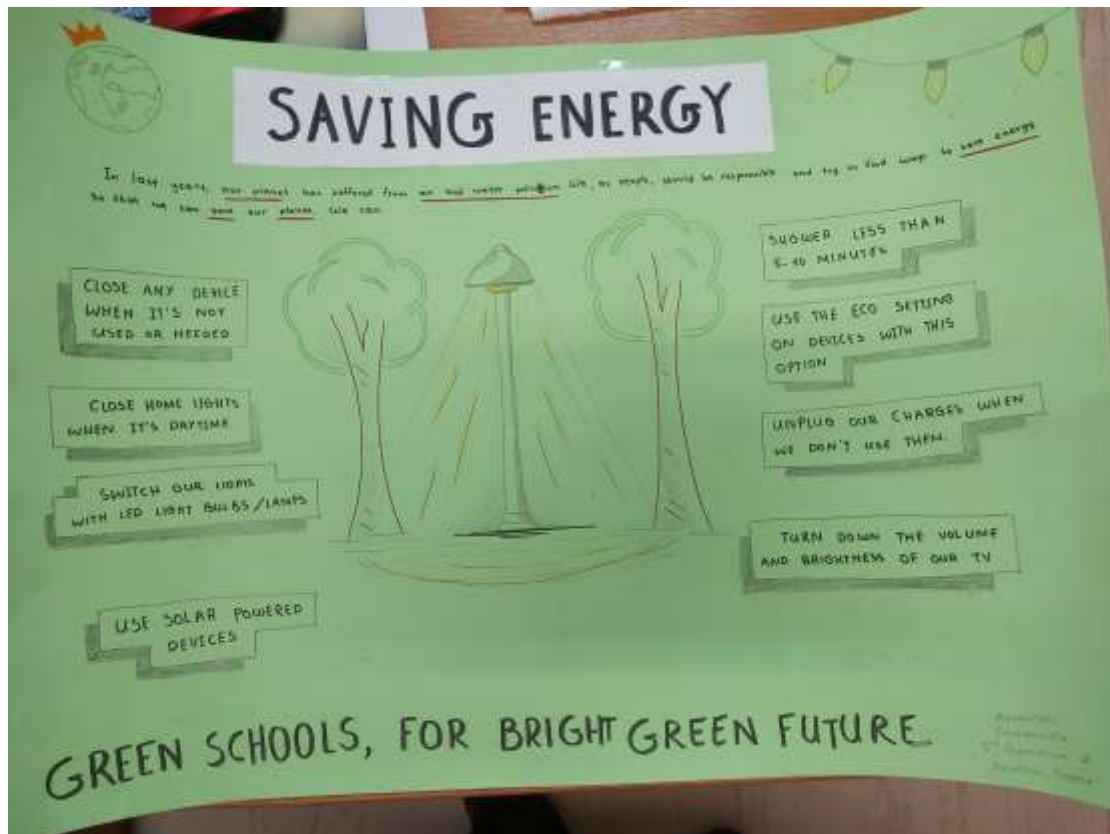 SAVING ENERGY
In last years, our planet has suffered from air and water pollution. We, as people, should be responsible and try to find ways to save energy
so that we can save our planet. We can:
CLOSE ANY DEVICE
WHEN IT'S NOT
USED OR NEEDED
CLOSE HOME LIGHTS
WHEN IT'S DAYTIME
SWITCH OUR LIGHTS
WITH LED LIGHT BULBS/LAMPS
USE SOLAR POWERED
DEVICES
SHOWER LESS THAN
5-10 MINUTES
USE THE ECO SETTING
ON DEVICES WITH THIS
OPTION
UNPLUG OUR CHARGES WHEN
WE DON'T USE THEM.
TURN DOWN THE VOLUME
AND BRIGHTNESS OF OUR TV
GREEN SCHOOLS, FOR BRIGHT GREEN FUTURE